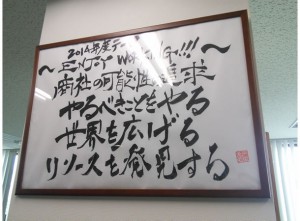 2014年度テーマ
～ENJOY WORKING!!!～
商社の可能性追求
やるべきことをやる
世界を広げる
リソースを発見する